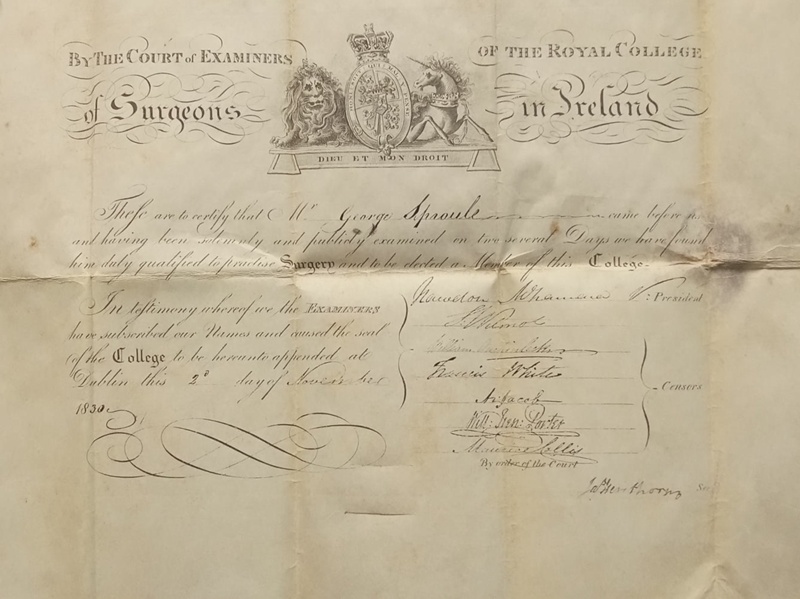 By The Court of Examiners of the Royal College
of Surgeons in Ireland
DIEU ET MON DROIT
These are to certify that Mr George Sproule came before
and having been solemnly and publicly examined on two several Days we have found
him duly qualified to practise Surgery and to be elected a Member of this College
In testimony whereof we the Examiners
have subscribed our Names and caused the seal
of the College to be hereunto appended at
Dublin this 2d day of November
1830
V: President
Wilmot
William
Francis White
Ar. Jacob
Will: Hen: Porter
Maurice Collis
Censors
By order of the Court
Henthorn